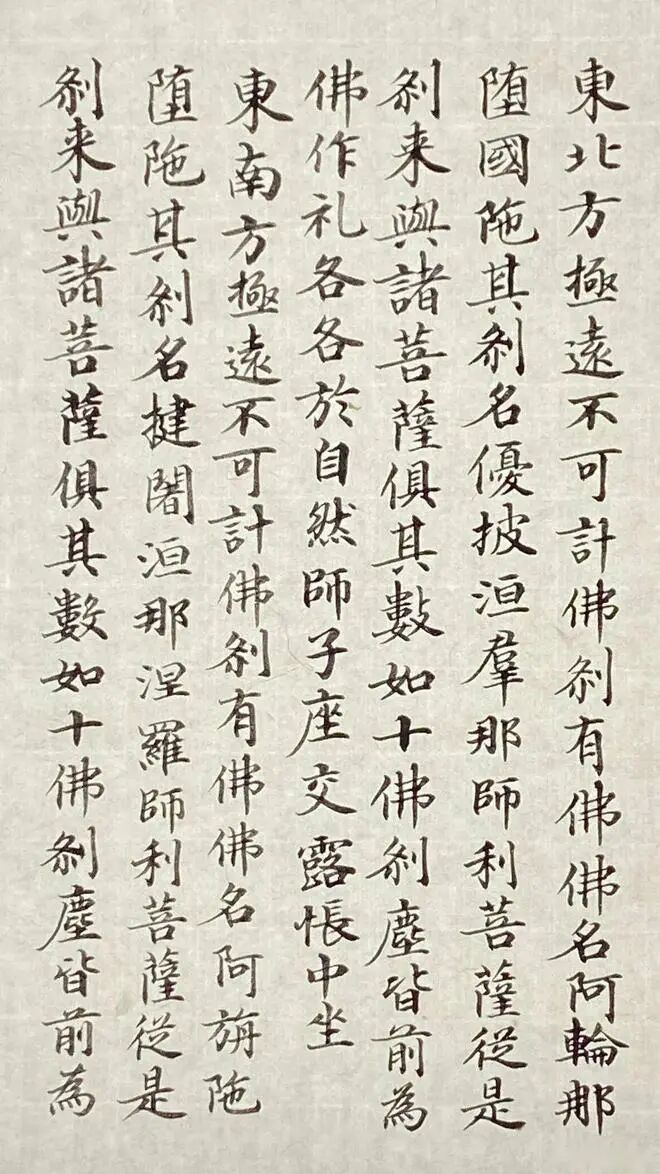 東北方極遠不可計佛刹有佛佛名阿輪那
堕國陁其刹名優披洹羣那師利菩薩従是
刹来與諸菩薩俱其數如十佛刹塵皆前為
佛作礼各各於自然師子座交露帳中坐
東南方極遠不可計佛刹有佛佛名阿旃陁
堕陁其刹名揵闍洹那涅羅師利菩薩従是
刹来與諸菩薩俱其數如十佛刹塵皆前為